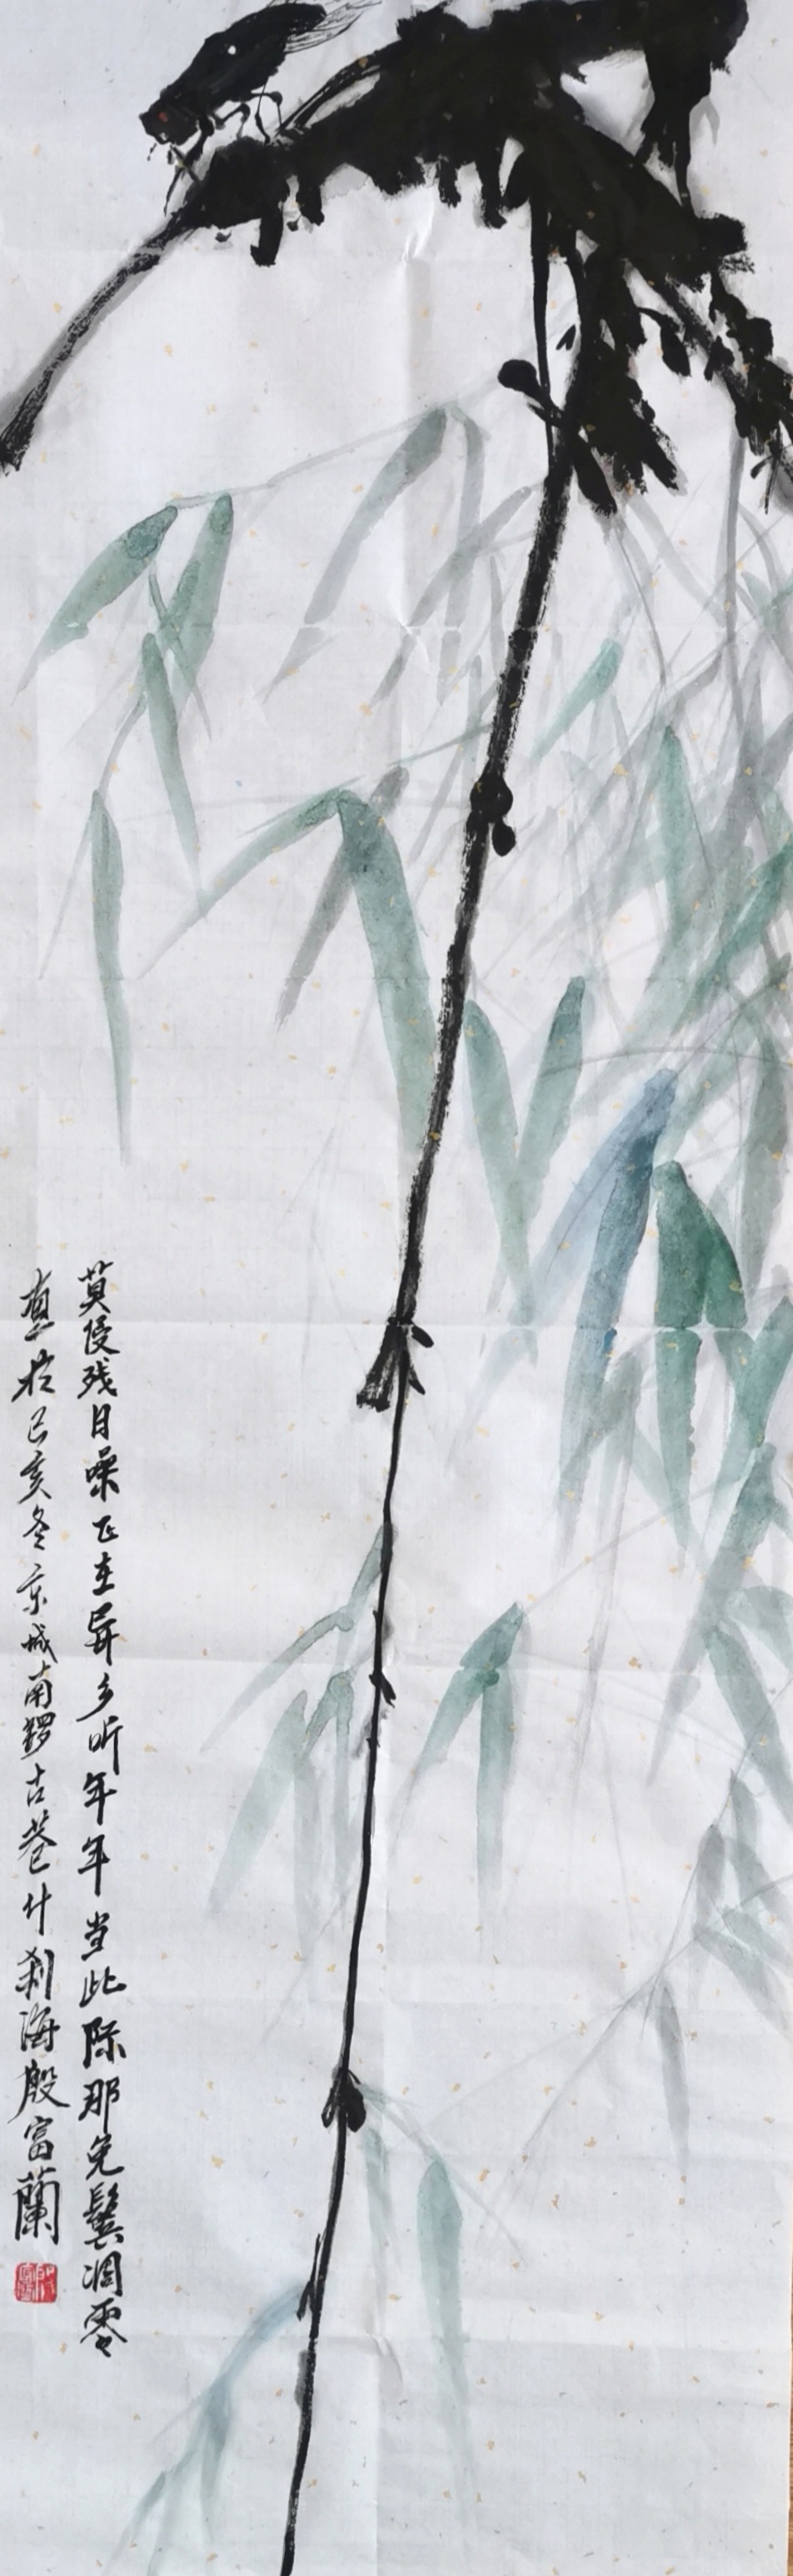 莫侵残日噪正在异乡听年年当此际那免鬓凋零
画于己亥冬京城南锣古巷什刹海殷富蘭